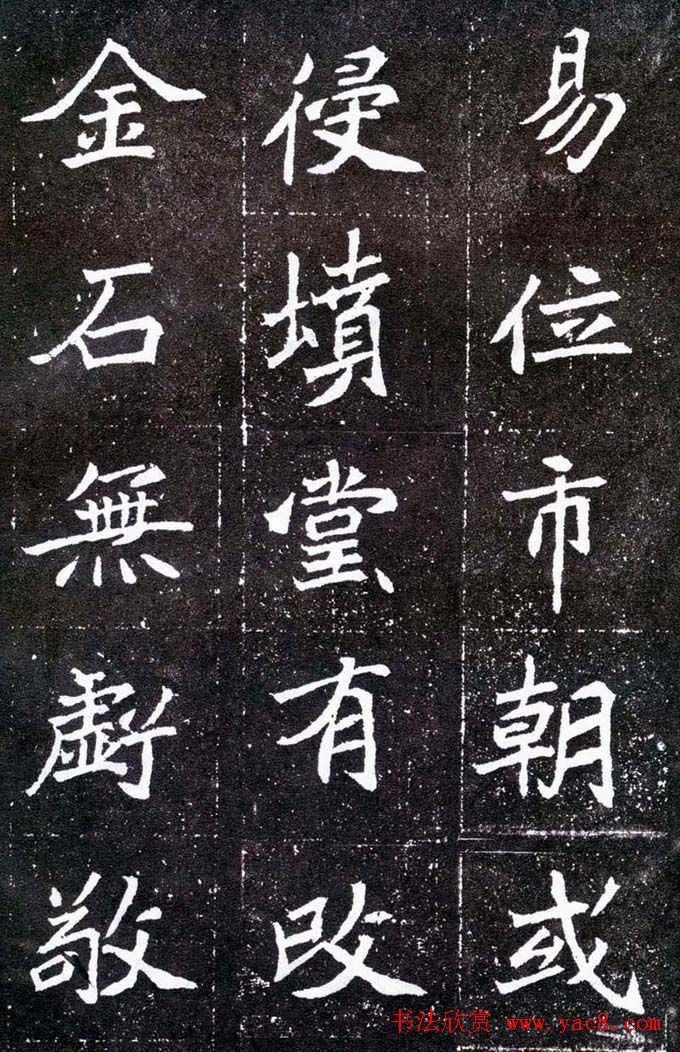 易位市朝或
侵墳堂有改
金石無虧敬
书法欣赏 www.yac8.com